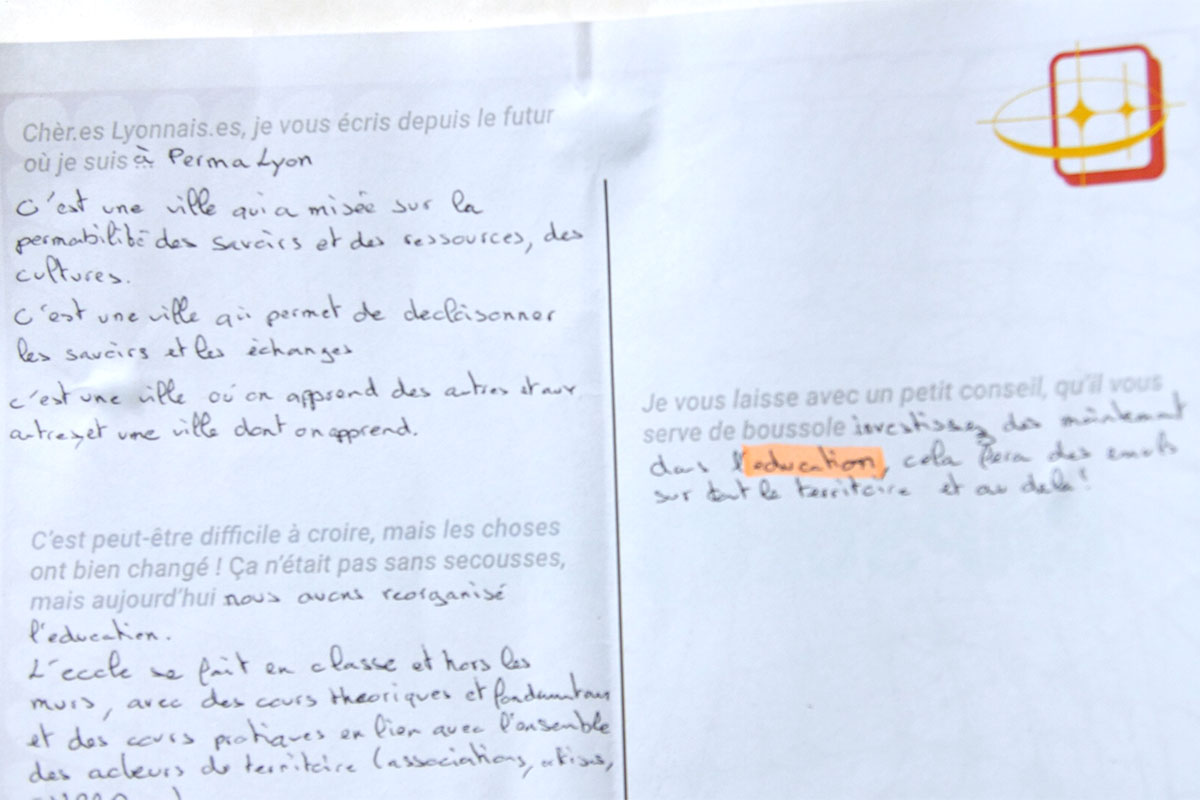 Chèr.es Lyonnais.es, je vous écris depuis le futur
où je suis à Perma Lyon
C'est une ville qui a misée sur la
permabilité des savoirs et des ressources, des
cultures.
C'est une ville qui permet de decloisonner
les savoirs et les échanges
c'est une ville où on apprend des autres et aux
autres, et une ville dont on apprend.
C'est peut-être difficile à croire, mais les choses
ont bien changé ! Ça n'était pas sans secousses,
mais aujourd'hui nous avons reorganisé
l'education.
L'ecole se fait en classe et hors les
murs, avec des cours theoriques et fondamentaux
et des cours pratiques en lien avec l'ensemble
des acteurs du territoire (associations,
Je vous laisse avec un petit conseil, qu'il vous
serve de boussole investissez des maintenant
dans l'education, cela fera des
sur tout le territoire et au delà !